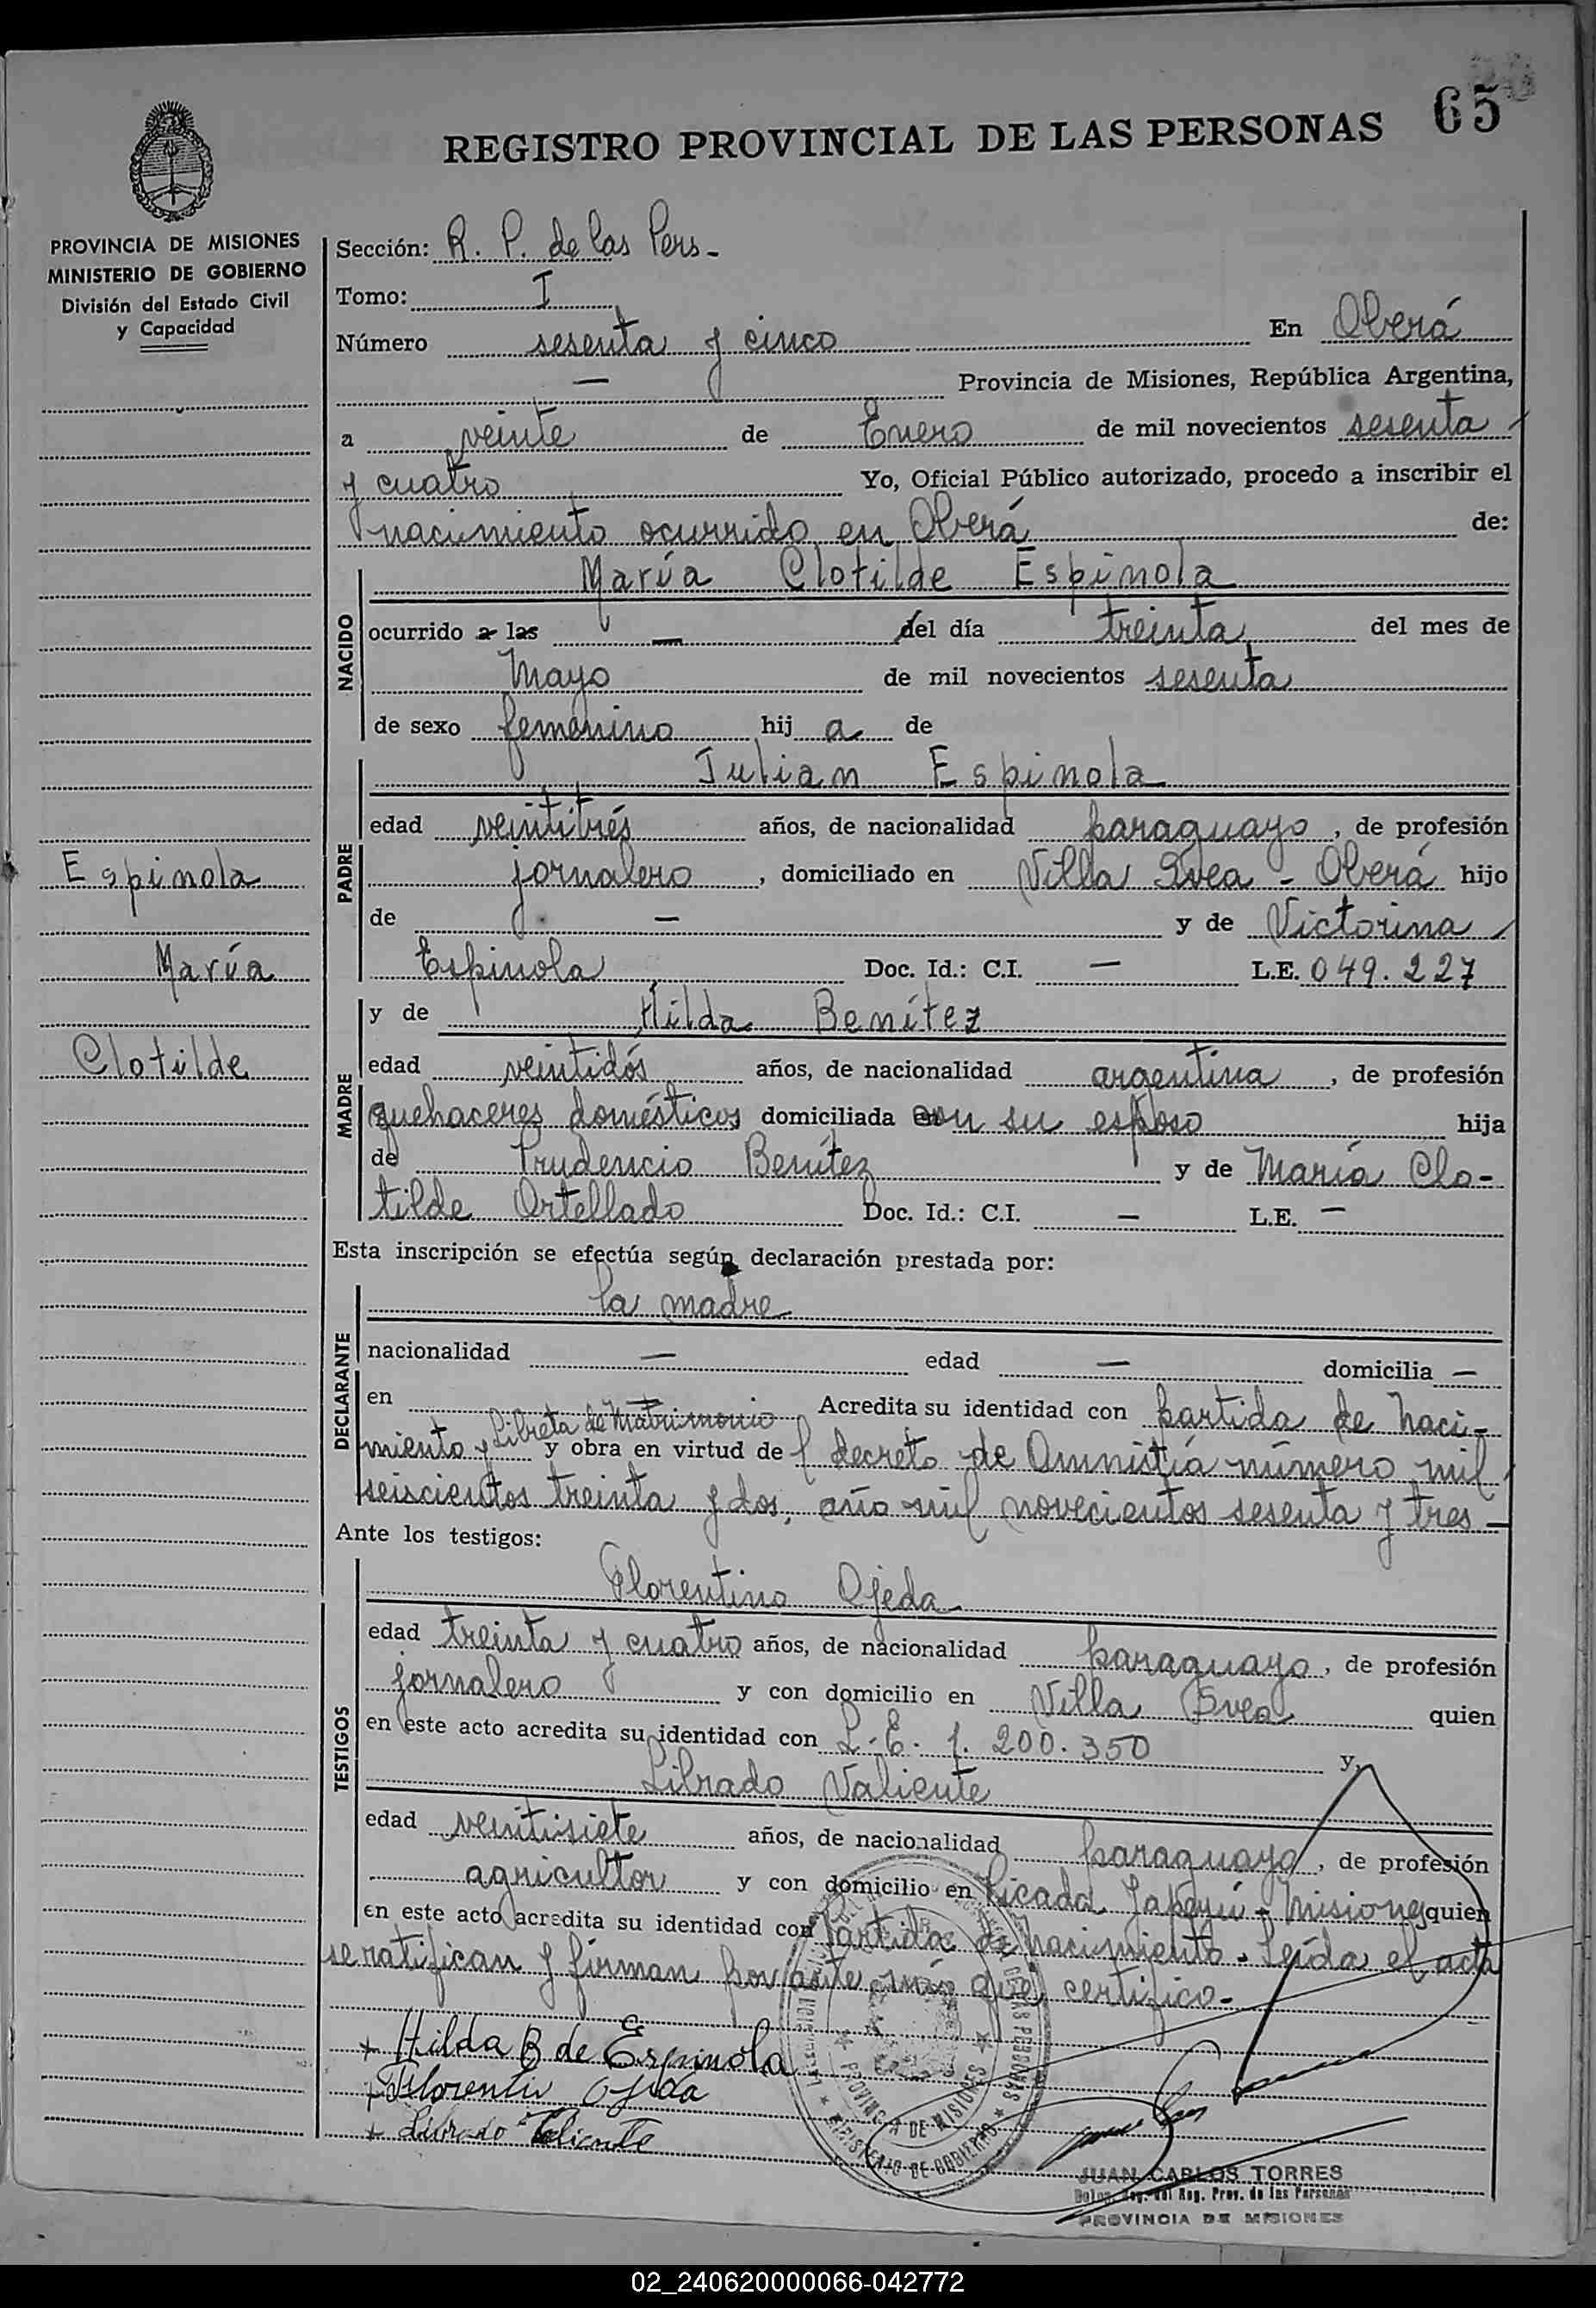 65
REGISTRO PROVINCIAL DE LAS PERSONAS
PROVINCIA DE MISIONES
MINISTERIO DE GOBIERNO
División del Estado Civil
y Capacidad
Sección: R. P. de las Pers-
Tomo: I
Número sesenta y cinco En Oberá
— Provincia de Misiones, República Argentina,
a veinte de Enero de mil novecientos sesenta
y cuatro Yo, Oficial Público autorizado, procedo a inscribir el
nacimiento ocurrido en Oberá de:
María Clotilde Espinola
NACIDO
ocurrido a las — del día treinta del mes de
Mayo de mil novecientos sesenta
de sexo femenino hij a de
Julian Espinola
PADRE
edad veintitrés años, de nacionalidad paraguayo, de profesión
jornalero, domiciliado en Villa Svea - Oberá hijo
de — y de Victorina
Espinola Doc. Id.: C.I. — L.E. 049.227
y de Hilda Benítez
MADRE
edad veintidós años, de nacionalidad argentina, de profesión
quehaceres domésticos domiciliada con su esposo hija
de Prudencio Benítez y de María Clo-
tilde Ortellado Doc. Id.: C.I. — L.E. —
Espinola
María
Clotilde
Esta inscripción se efectúa según declaración prestada por:
la madre
DECLARANTE
nacionalidad — edad — domicilia —
en — Acredita su identidad con partida de naci-
miento y Libreta de Matrimonio y obra en virtud del decreto de Amnistía número mil
seiscientos treinta y dos, año mil novecientos sesenta y tres —
Ante los testigos:
Florentino Ojeda
TESTIGOS
edad treinta y cuatro años, de nacionalidad paraguayo, de profesión
jornalero y con domicilio en Villa Svea quien
en este acto acredita su identidad con L.E. 1.200.350 y
Librado Valiente
edad veintisiete años, de nacionalidad paraguayo, de profesión
agricultor y con domicilio en Picada Yapeyú - Misiones quien
en este acto acredita su identidad con Partida de nacimiento. Leída el acta
se ratifican y firman por ante mí que certifico.
+ Hilda B de Espinola
+ Florentin Ojeda
+ Librado Valiente
PROVINCIA DE MISIONES
MINISTERIO DE GOBIERNO
JUAN CARLOS TORRES
Reg. del Reg. Prov. de las Personas
PROVINCIA DE MISIONES
02_240620000066-042772